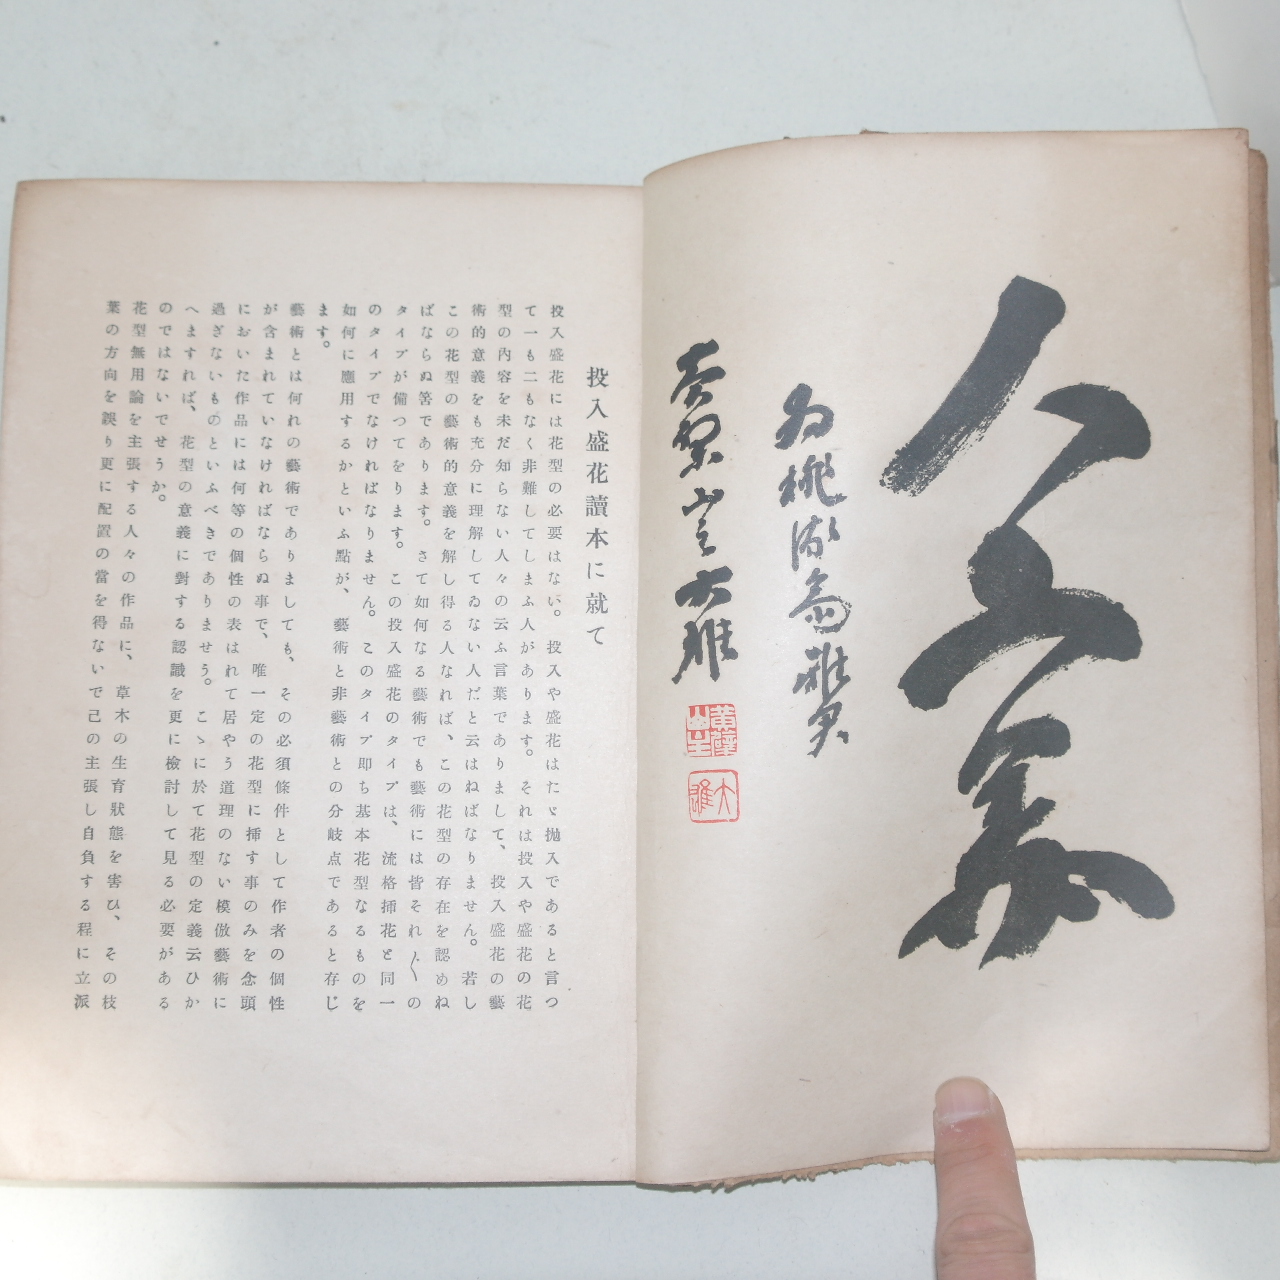 人工美
為桃渓斎雅君
黄檗山主大雄
黄檗山主
大雄
投入盛花讀本に就て
投入盛花には花型の必要はない。投入や盛花はたゞ抛入であると言つ
て一も二もなく非難してしまふ人があります。それは投入や盛花の花
型の内容を未だ知らない人々の云ふ言葉でありまして、投入盛花の藝
術的意義をも充分に理解してゐない人だと云はねばなりません。若し
この花型の藝術的意義を解し得る人なれば、この花型の存在を認めね
ばならぬ筈であります。さて如何なる藝術でも藝術には皆それ〲の
タイプが備つてをります。この投入盛花のタイプは、流格挿花と同一
のタイプでなければなりません。このタイプ即ち基本花型なるものを
如何に應用するかといふ點が、藝術と非藝術との分岐点であると存じ
ます。
藝術とは何れの藝術でありましても、その必須條件として作者の個性
が含まれていなければならぬ事で、唯一定の花型に挿す事のみを念頭
においた作品には何等の個性の表はれて居やう道理のない模倣藝術に
過ぎないものといふべきでありませう。こゝに於て花型の定義云ひか
へますれば、花型の意義に對する認識を更に檢討して見る必要がある
のではないでせうか。
花型無用論を主張する人々の作品に、草木の生育狀態を害ひ、その枝
葉の方向を誤り更に配置の當を得ないで己の主張し自負する程に立派